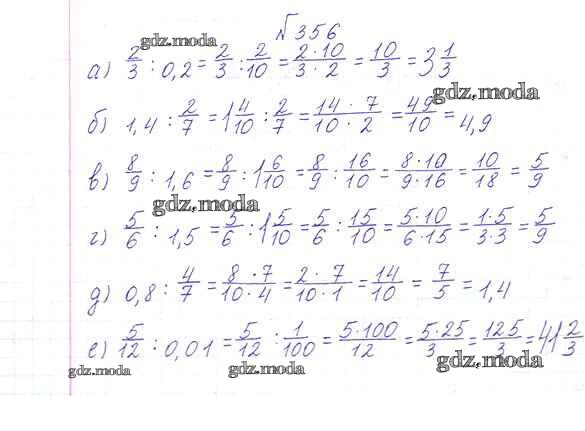 №356
а) 2/3 : 0,2 = 2/3 : 2/10 = 2·10/3·2 = 10/3 = 3 1/3
gdz.moda
gdz.moda
б) 1,4 : 2/7 = 1 4/10 : 2/7 = 14·7/10·2 = 49/10 = 4,9
в) 8/9 : 1,6 = 8/9 : 1 6/10 = 8/9 : 16/10 = 8·10/9·16 = 10/18 = 5/9
gdz.moda
г) 5/6 : 1,5 = 5/6 : 1 5/10 = 5/6 : 15/10 = 5·10/6·15 = 1·5/3·3 = 5/9
д) 0,8 : 4/7 = 8·7/10·4 = 2·7/10·1 = 14/10 = 7/5 = 1,4
е) 5/12 : 0,01 = 5/12 : 1/100 = 5·100/12 = 5·25/3 = 125/3 = 41 2/3
gdz.moda gdz.moda gdz.moda